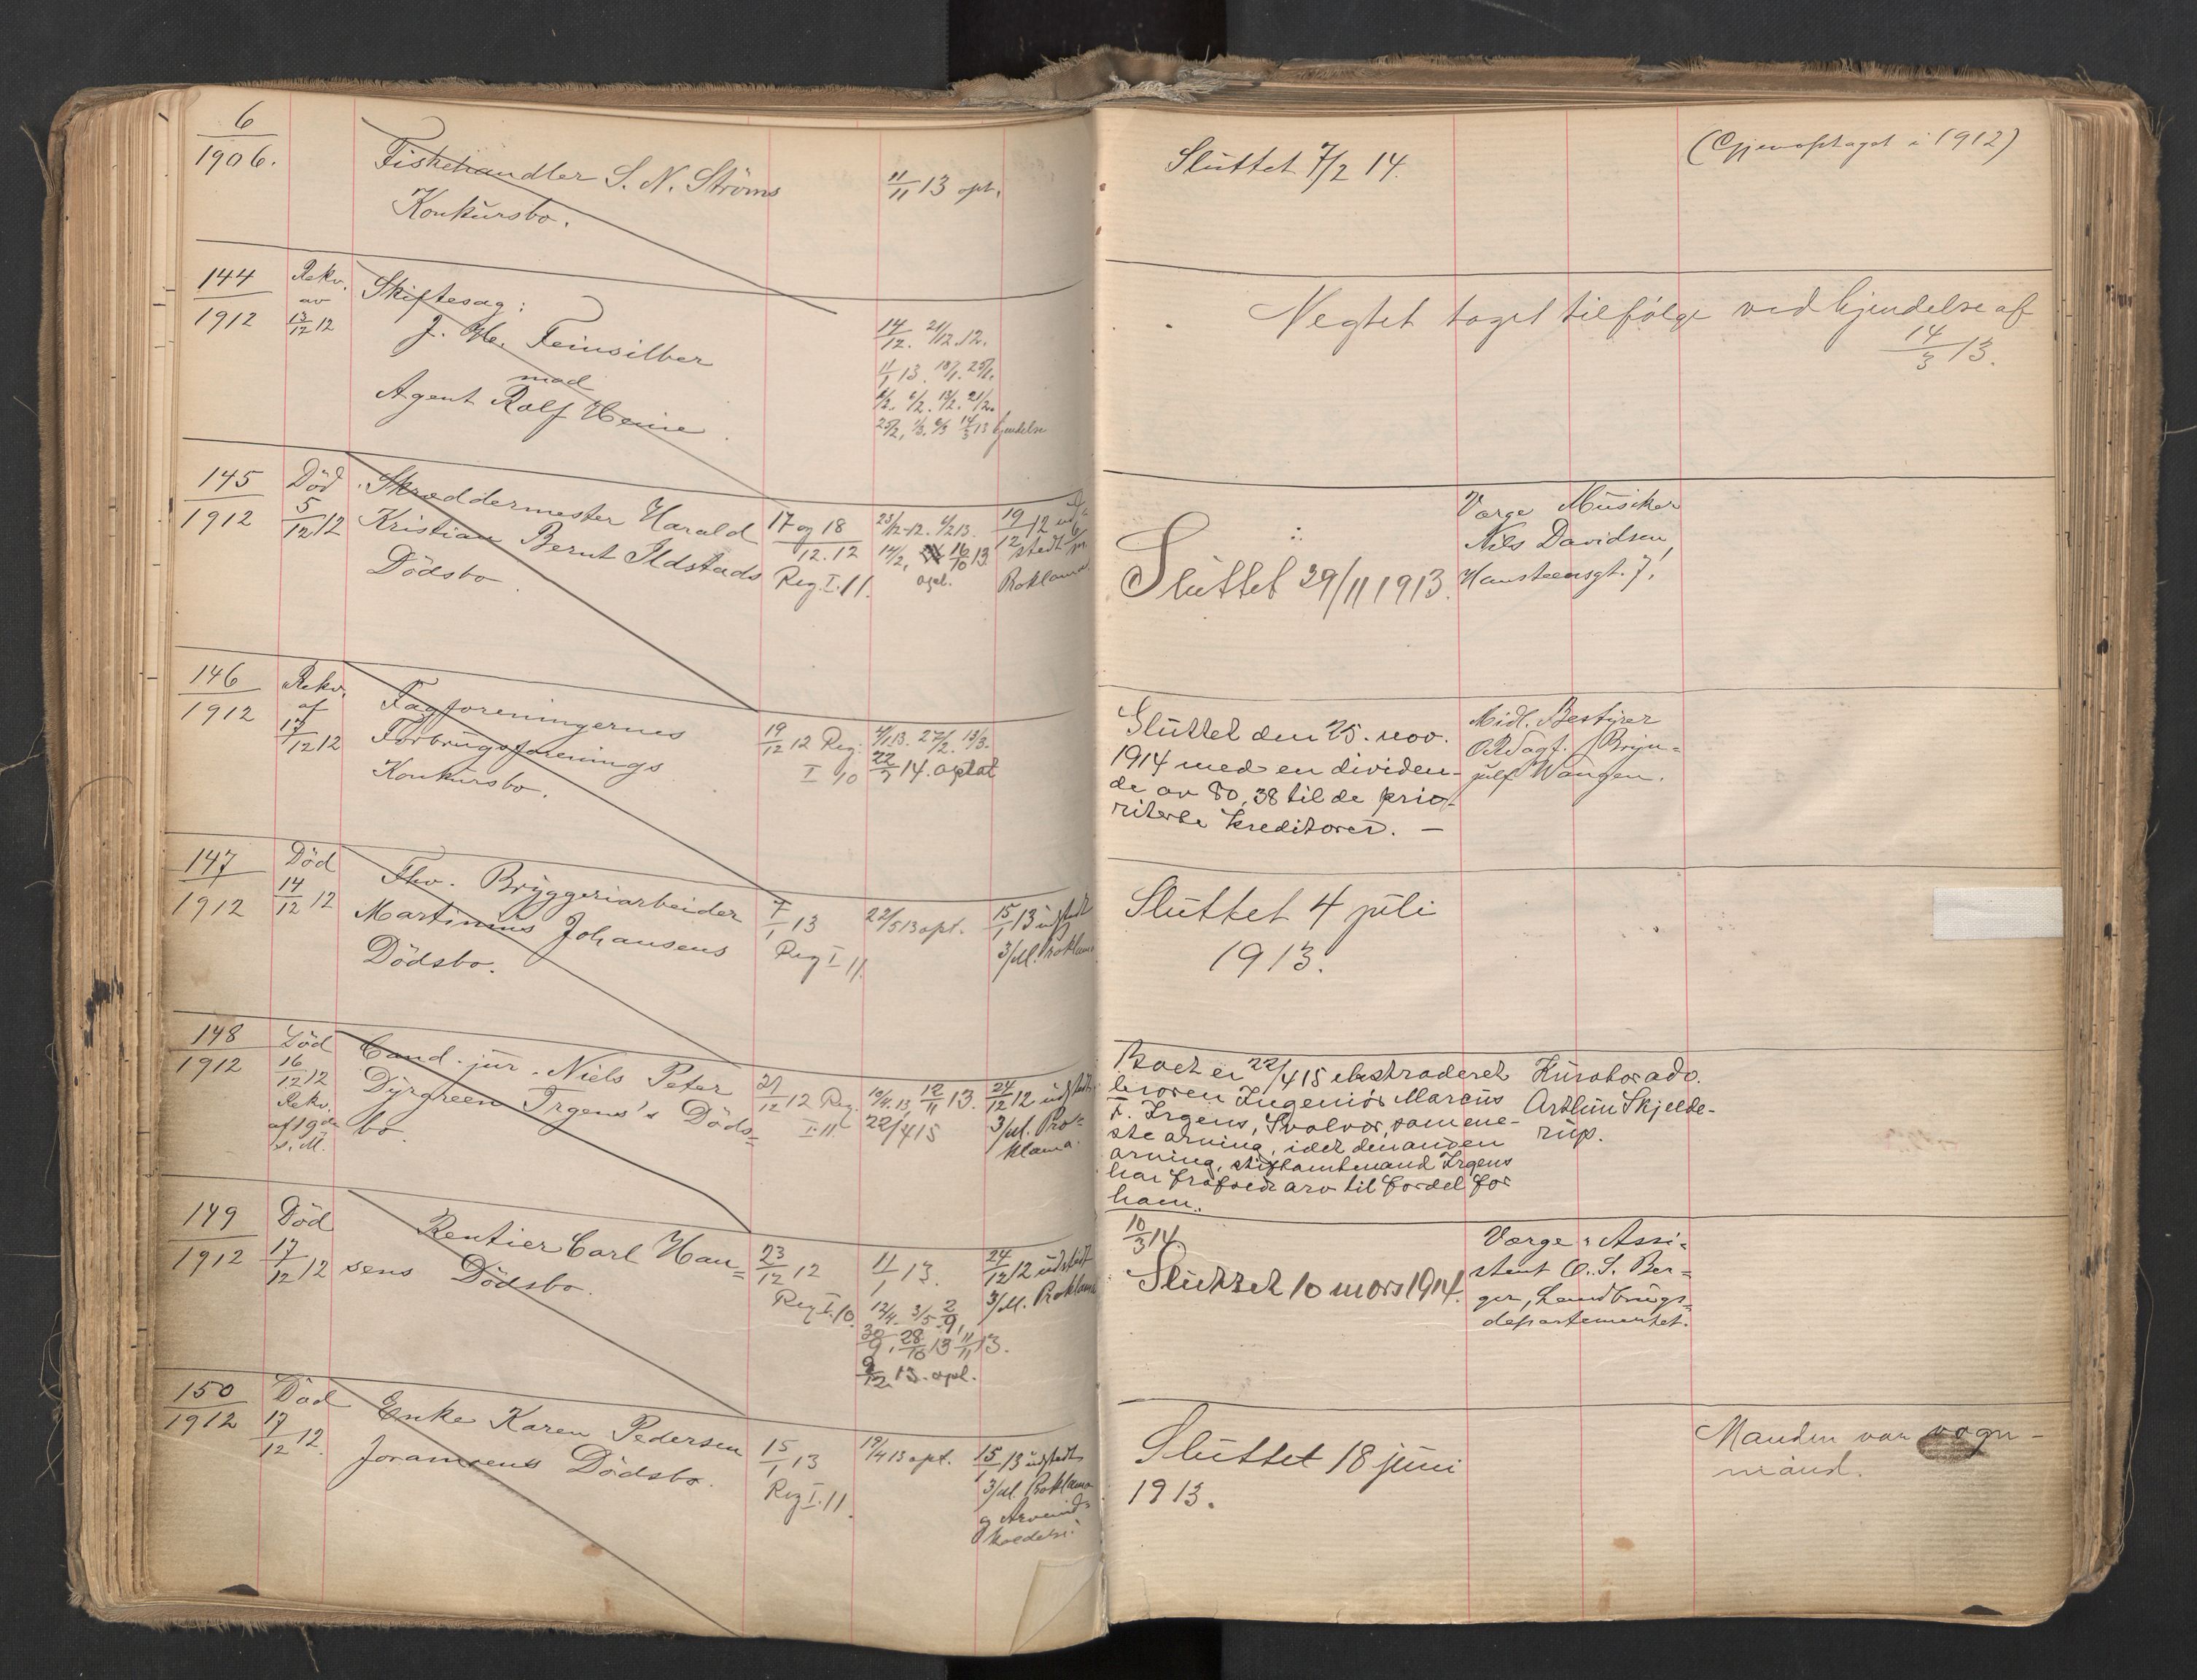 6
1906.
Fiskehandler S. N. Ströms
Konkursbo.
11/11 13 opt.
Sluttet 7/2 14.
(Gjenoptaget i 1912)
144
1912
Rekv.
av
13/12 12
Skiftesag:
J. He. Feinsilber
mod
Agent Rolf Heine.
14/12. 21/12 12.
11/1 13. 18/1. 25/1.
6/2. 13/2. 21/2.
25/2, 14/3 13 kjendelse
Negtet taget tilfølge ved kjendelse af
14/3 13.
145
1912
Död
5/12 12
Skræddermester Harald
Kristian Bernt Ildstads
Dödsbo
17 og 18
12.12
Reg. I. 11.
23/12-12. 4/2 13.
14/2, 16/10 13.
opl.
19/12 12 ud-
stedt
Proklama.
Sluttet 29/11 1913.
Værge Musiker
Nils Davidsen,
Hansteensgt. 7.
146
1912
Rekv.
af
17/12 12
Fagforeningernes
Forbrugsforenings
Konkursbo.
19/12 12 Reg.
I 10
4/1 13. 27/2. 13/3.
22/7 14. optat
Sluttet den 25. nov.
1914 med en dividen-
de av 80,38 til de prio-
riterte kreditorer. —
Midl. Bestyrer
O.R.Sagf. Bryn-
julf Wangen.
147
1912
Död
14/12 12
Fhv. Bryggeriarbeider
Martinius Johansens
Dödsbo.
7/1 13
Reg I 11.
22/5 13 opt.
15/1 13 udstedt
3/M. Proklama
Sluttet 4 juli
1913.
148
1912
Död
16/12 12
Rekv.
af 19de
s. M.
Cand. jur. Niels Peter
Dyrgreen Irgens's Döds-
bo
21/12 12 Reg.
I. 11.
19/4. 13, 12/11 13.
22/4 15
24/12 12 udstedt
3/M. Pro-
klama.
Boet er 22/4 15 ekstraderet
broren Ingeniör Marcus
F. Irgens, Svolvær, som ene-
ste arving, idet den anden
arving, stiftamtmand Irgens
har frafaldt arv til fordel for
ham.
Kurator adv.
Arthur Skjelde-
rup.
149
1912
Död
17/12 12
Rentier Carl Han-
sens Dödsbo.
23/12 12
Reg I. 10.
11/1 13.
12/4. 3/5. 2/9,
30/9, 28/10 13 11/11 13.
9/12 13. opl.
24/12 12 udstedt
3/M. Proklama
10/3 14.
Sluttet 10 mars 1914.
Værge: Assi-
stent O. S. Ber-
ger, Landbrugs-
departementet.
150
1912
Död
17/12 12.
Enke Karen Pedersen
Joramoens Dödsbo.
15/1 13
Reg I. 11.
19/4 13 opt.
15/1 13 udstedt
3/M. Proklama
og Arveind-
kaldelse.
Sluttet 18 juni
1913.
Manden var vogn-
mand.